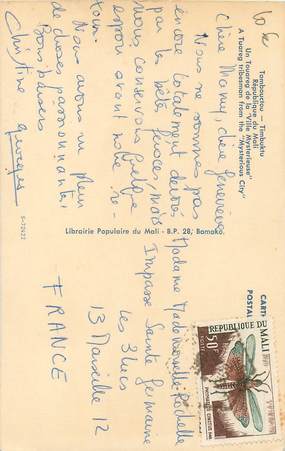 60 c
Tombouctou - Timbuktu
République du Mali
Un Touareg de la "Ville Mysterieuse"
A Tuareg tribesman from the "Mysterious City"
Chère Mamy, chère Geneviève
Nous ne somme pas
encore totalement dévorés
par les petites puces, mais
nous conservons quelque
espoir avant notre re-
tour.
Nous avons vu plein
de choses passionnantes
Bons baisers
Christine Georges
S-72422
Librairie Populaire du Mali - B.P. 28, Bamako.
CARTE
POSTALE
REPUBLIQUE DU MALI
50F
POSTES
Madame Mademoiselle Rochelle
Impasse Sainte Germaine
Les 3 lucs
13 Marseille 12
FRANCE